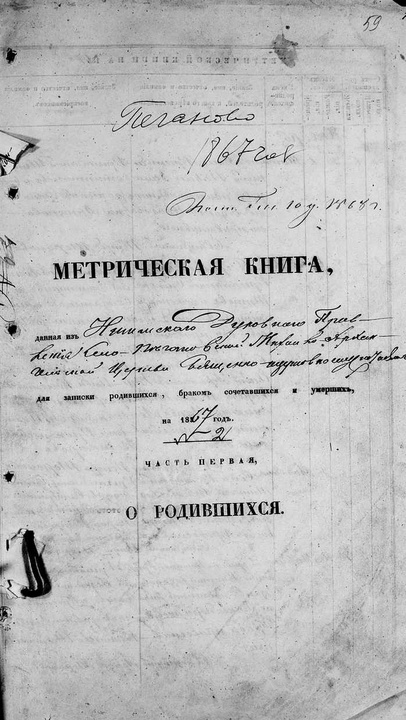 59
Пеганово
1867 год
1868 г.
МЕТРИЧЕСКАЯ КНИГА,
данная изъ Ишимскаго Духовнаго Прав-
ленія Села Михаило-Архан-
Церкви Священно-церковнослужителямъ
для записки родившихся, бракомъ сочетавшихся и умершихъ,
на 1867 годъ.
№ 2
ЧАСТЬ ПЕРВАЯ,
О РОДИВШИХСЯ.